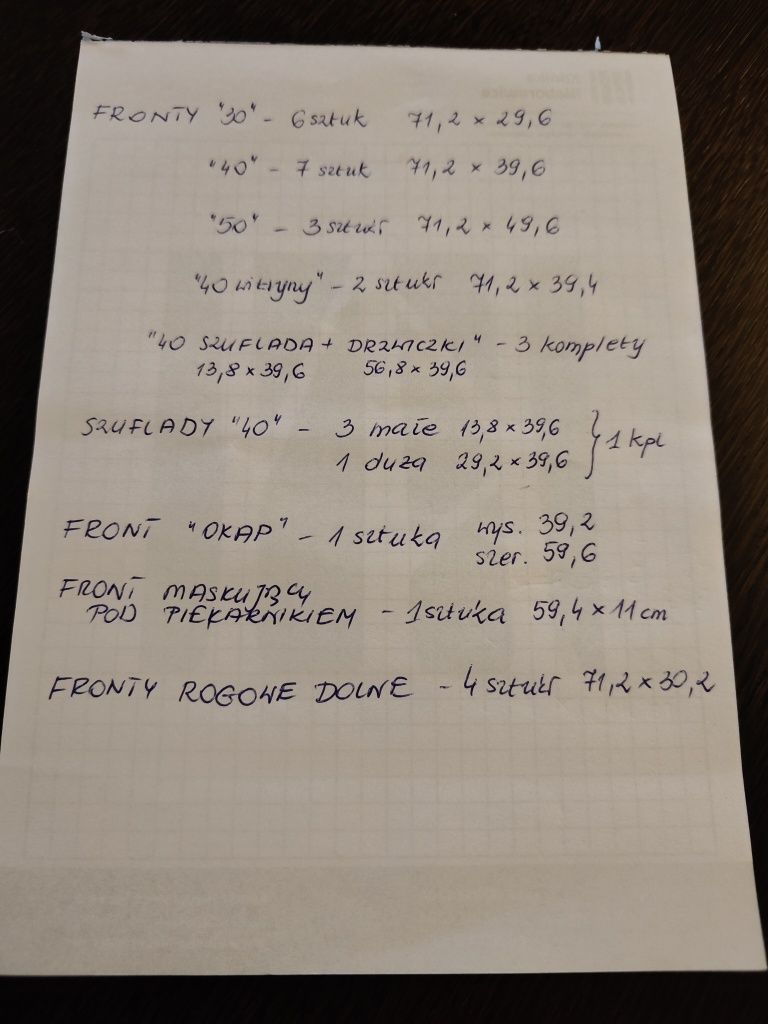 FRONTY "30" - 6 sztuk 71,2 × 29,6
"40" - 7 sztuk 71,2 × 39,6
"50" - 3 sztuki 71,2 × 49,6
"40 witryny" - 2 sztuki 71,2 × 39,4
"40 SZUFLADA + DRZWICZKI" - 3 komplety
13,8 × 39,6 56,8 × 39,6
SZUFLADY "40" - 3 małe 13,8 × 39,6
1 duża 29,2 × 39,6 } 1 kpl
FRONT "OKAP" - 1 sztuka wys. 39,2
szer. 59,6
FRONT MASKUJĄCY
POD PIEKARNIKIEM - 1 sztuka 59,4 × 11 cm
FRONTY ROGOWE DOLNE - 4 sztuki 71,2 × 30,2